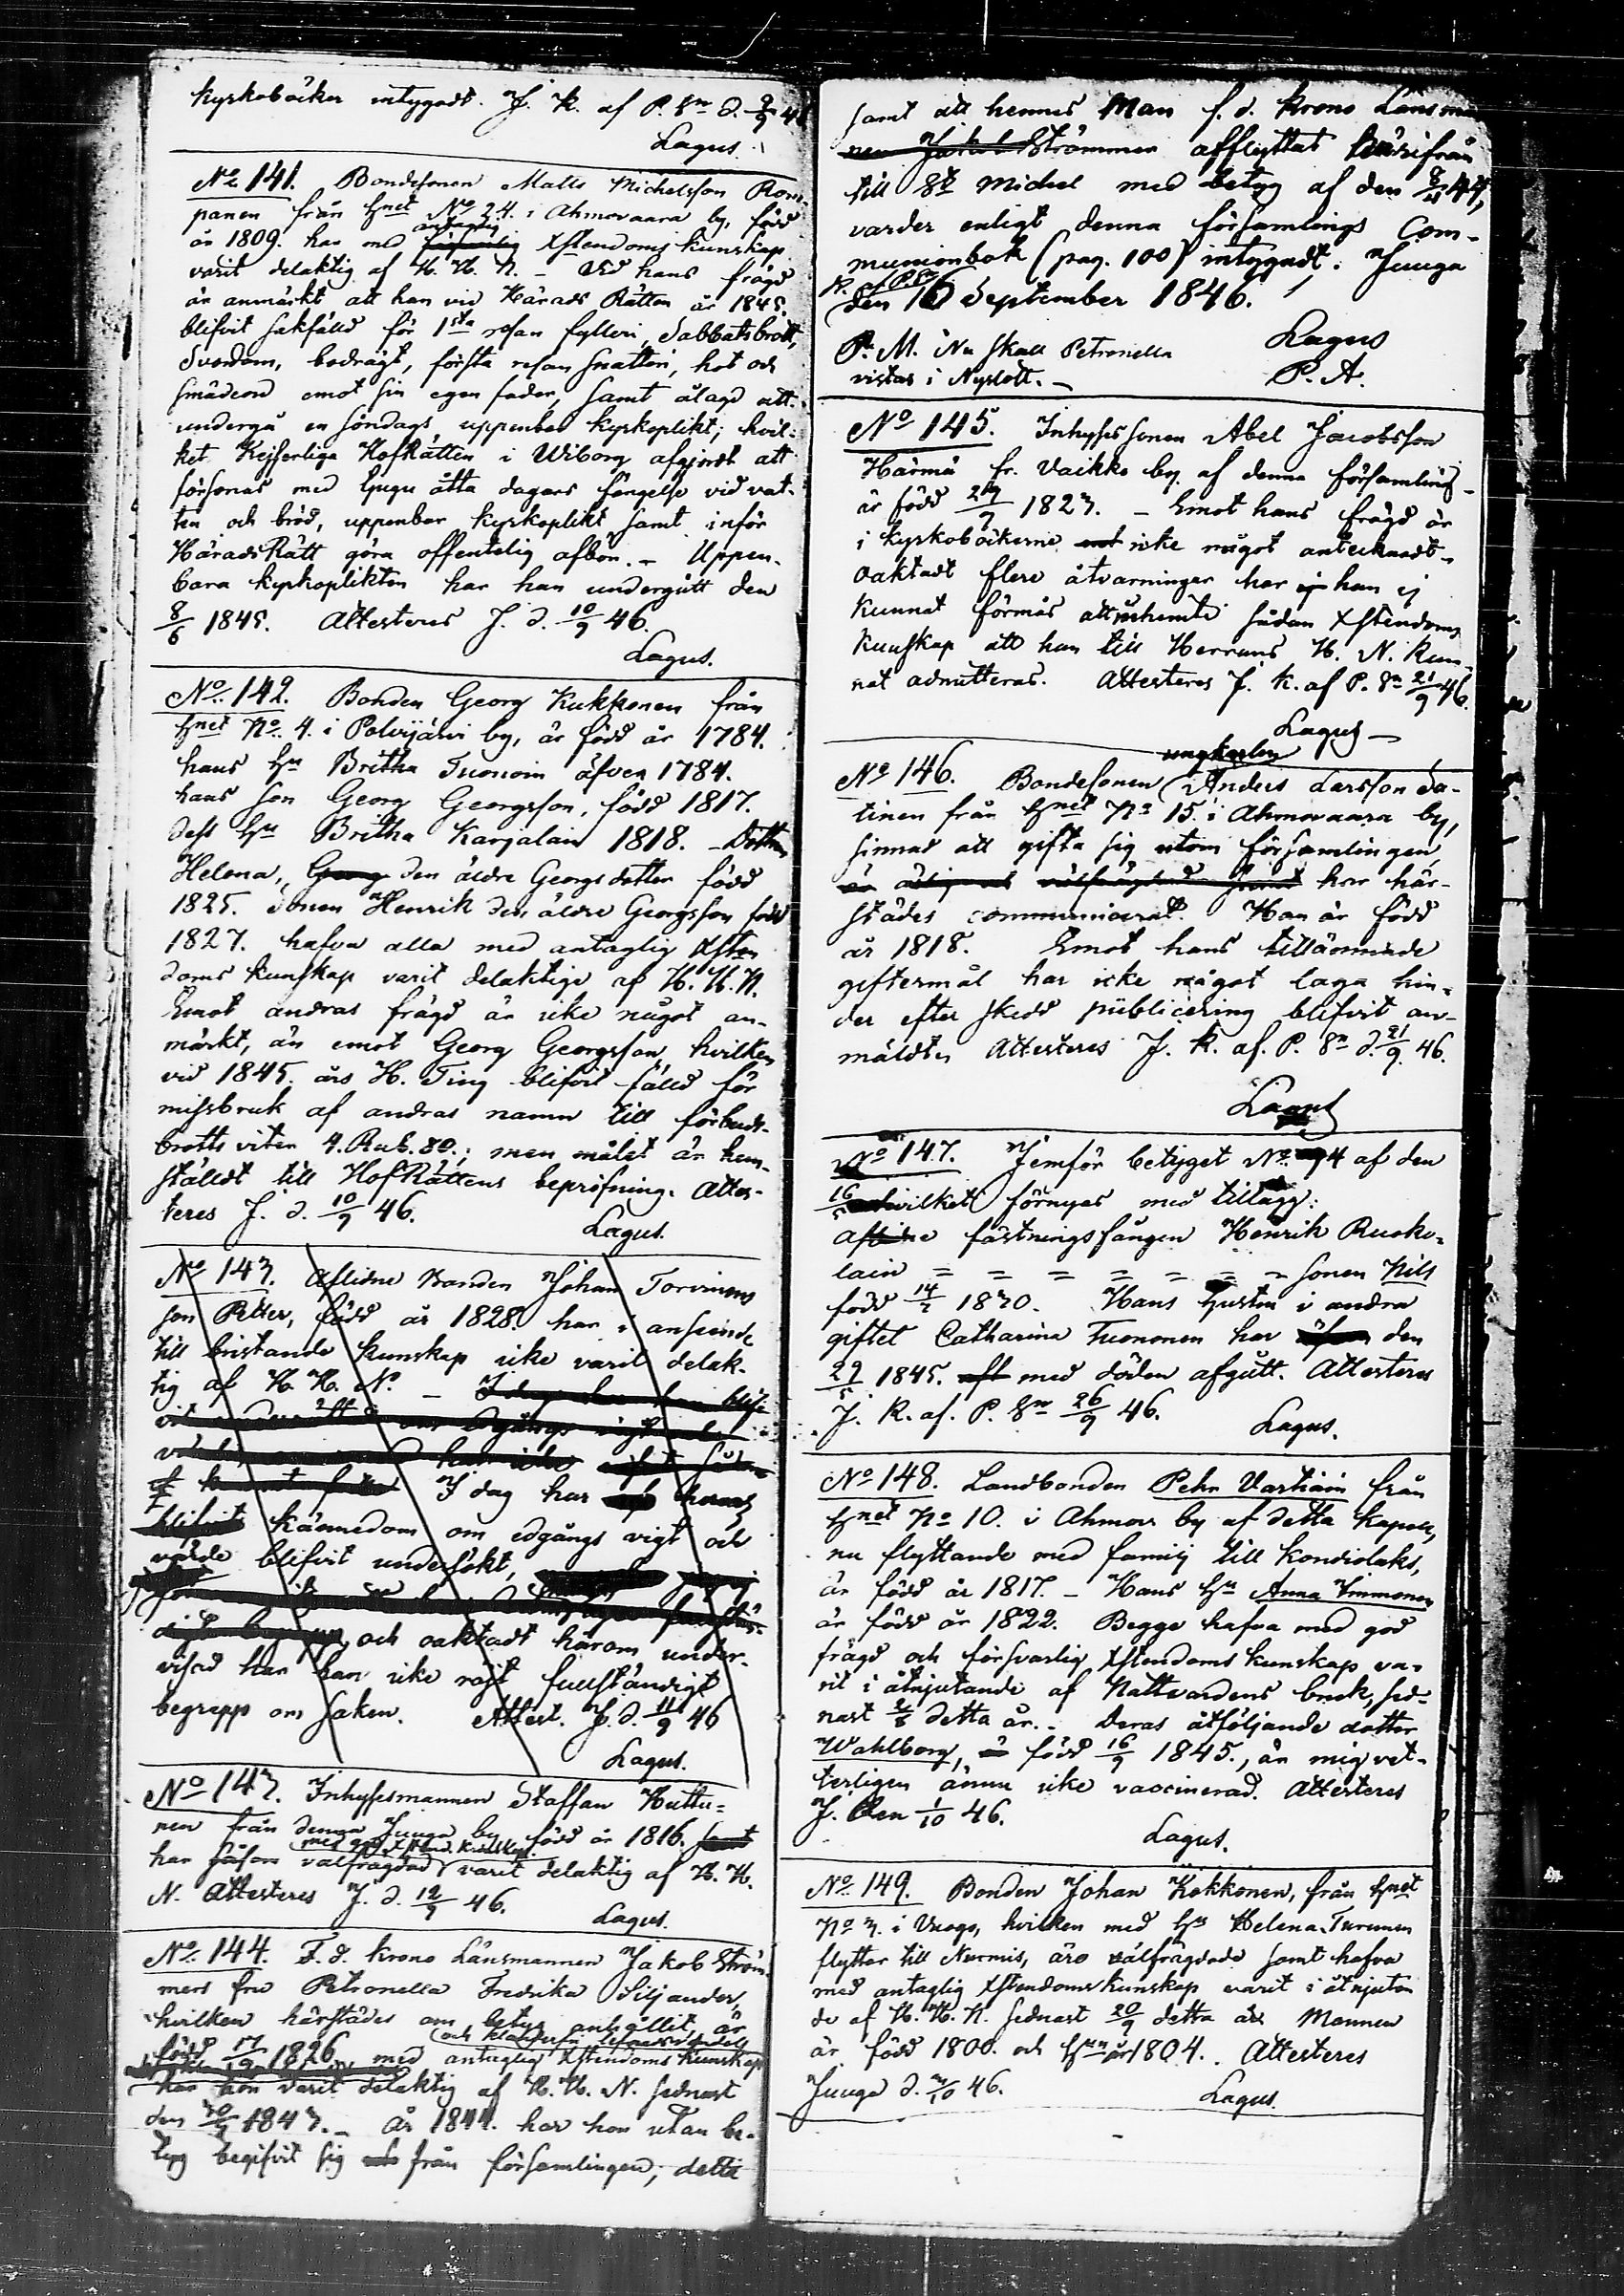 kyrkoböcker intygadt. J. K. af P. Sn d. 9/9 46
Lagus.
No 141. Bondesonen Matts Michelsson Rom-
panen från Hmet No 24. i Ahmovaara by, född
år 1809. har med antaglig Xstendoms kunskap
varit delaktig af H. H. N. – Vid hans frägd
är anmärkt att han vid Härads Rätten år 1845.
blifvit sakfälld för 1sta resan fylleri, Sabbatsbrott,
Svordom, bedrägt, första resan snatteri, hot och
smädeord emot sin egen fader, samt ålagd att
undergå en söndags uppenbar kyrkoplikt; hvil-
ket Kejserliga HofRätten i Wiborg afgjordt att
försonas med tjugu åtta dagars fängelse vid vat-
ten och bröd, uppenbar kyrkoplikt samt inför
HäradsRätt göra offentelig afbön. – Uppen-
bara kyrkoplikten har han undergått den
8/6 1845. Attesteres J. d. 10/9 46.
Lagus.
No. 142. Bonden Georg Kukkonen från
Hmet No. 4. i Polvijärvi by, är född år 1784.
hans Hu Britha Tuonoin äfven 1784.
hans son Georg Georgsson, född 1817.
dess Hu Britha Karjalain 1818. – Dottren
Helena, den äldre Georgs dotter född
1825. Sonen Henrik den äldre Georgsson född
1827. hafva alla med antaglig Xsten
doms kunskap varit delaktige af H. H. N.
Emot andras frägd är icke något an-
märkt, än emot Georg Georgsson, hvilken
vid 1845. års H. Ting blifvit fälld för
missbruk af andras namn till förbuds-
brotts viten 4. Rub. 80.; men målet är hem-
ställdt till HofRättens bepröfning. Attes-
teres J. d. 10/9 46.
Lagus.
No 143. Aflidne Bonden Johan Torvinens
son Petter, född år 1828. har i anseende
till bristande kunskap icke varit delak-
tig af H. H. N. –
I dag har
kännedom om edgångs vigt och
värde blifvit undersökt,
och oaktadt härom under-
visad har han icke röjt fullständigt
begrepp om saken. Attest. J. d. 11/9 46
Lagus.
No 143. Inhysesmannen Staffan Huttu-
nen från denna Juuga by född år 1816.
har såsom välfrägdad med god Xstend. kunskap varit delaktig af H. H.
N. Attesteres J. d. 12/9 46.
Lagus.
No. 144. F. d. Krono Länsmannen Jakob Ström-
mers fru Petronella Fredrika Siljander,
hvilken härstädes om betyg anhållit, är
född 17/9 1826. med antaglig Xstendoms kunskap
har hon varit delaktig af H. H. N. sednast
den 30/7 1843. – År 1844. har hon utan be-
tyg begifvit sig från församlingen; detta
samt att hennes Man f. d. Krono Länsman
Strömmer afflyttat härifrån
till St Michel med betyg af den 8/11 44,
varder enligt denna församlings Com-
munionbok (pag. 100) intygadt. Juuga
K. af P. Sn
den 16 September 1846.
P. M. Nu skall Petronella
vistas i Nyslott. –
Lagus
P. A.
No 145. Inhyses sonen Abel Jacobsson
Härmä fr. Vaikko by af denna församling
är född 29/9 1823. – Emot hans frägd är
i kyrkoböckerne icke något anteknadt –
Oaktadt flere åtvarningar har han ej
kunnat förmås att inhemta sådan Xstendoms
kunskap att han till Herrans H. N. kun-
nat admitteras. Attesteres J. K. af P. Sn 21/9 46.
Lagus –
No 146. Bondesonen ungkarlen Anders Larsson Sa-
tinen från Hmet No 15. i Ahmovaara by,
sinnad att gifta sig utom församlingen,
har här-
städes communicerat. Han är född
år 1818. Emot hans tillämnade
giftermål har icke något laga hin-
der efter skedd publicering blifvit an-
mäldt. Attesteres J. K. af. P. Sn d. 21/9. 46.
Lagus
No 147. Jemför betyget No. 94 af den
16/5 hvilket förnyas med tillägg:
Aflidne fästningsfången Henrik Rusko-
lain = = = = = = = sonen Nils
född 14/2 1830. Hans Hustru i andra
giftet Catharina Tuononen har den
29/5 1845. med döden afgått. Attesteres
J. K. af. P. Sn 26/9 46.
Lagus.
No 148. Landbonden Pehr Vartiain från
Hmet No 10. i Ahmov. by af detta kapell,
nu flyttande med familj till Kondiolaks,
är född år 1817. – Hans Hu Anna Immonen
är född år 1822. Begge hafva med god
frägd och försvarlig Xstendoms kunskap va-
rit i åtnjutande af Nattvardens bruk, sed-
nast 2/8 detta år. – Deras åtföljande dotter
Wahlborg, född 16/9 1845., är mig vet-
terligen ännu icke vaccinerad. Attesteres
J. Den 1/10 46.
Lagus.
No. 149. Bonden Johan Kokkonen, från Hmet
No 3. i Vuogo, hvilken med Hu Helena Turunen
flyttar till Nurmis, äro välfrägdade samt hafva
med antaglig Xstendoms kunskap varit i åtnjutan
de af H. H. N. sednast 20/9 detta år. Mannen
är född 1800. och Hun år 1804. Attesteres
Juuga d. 3/10 46.
Lagus.